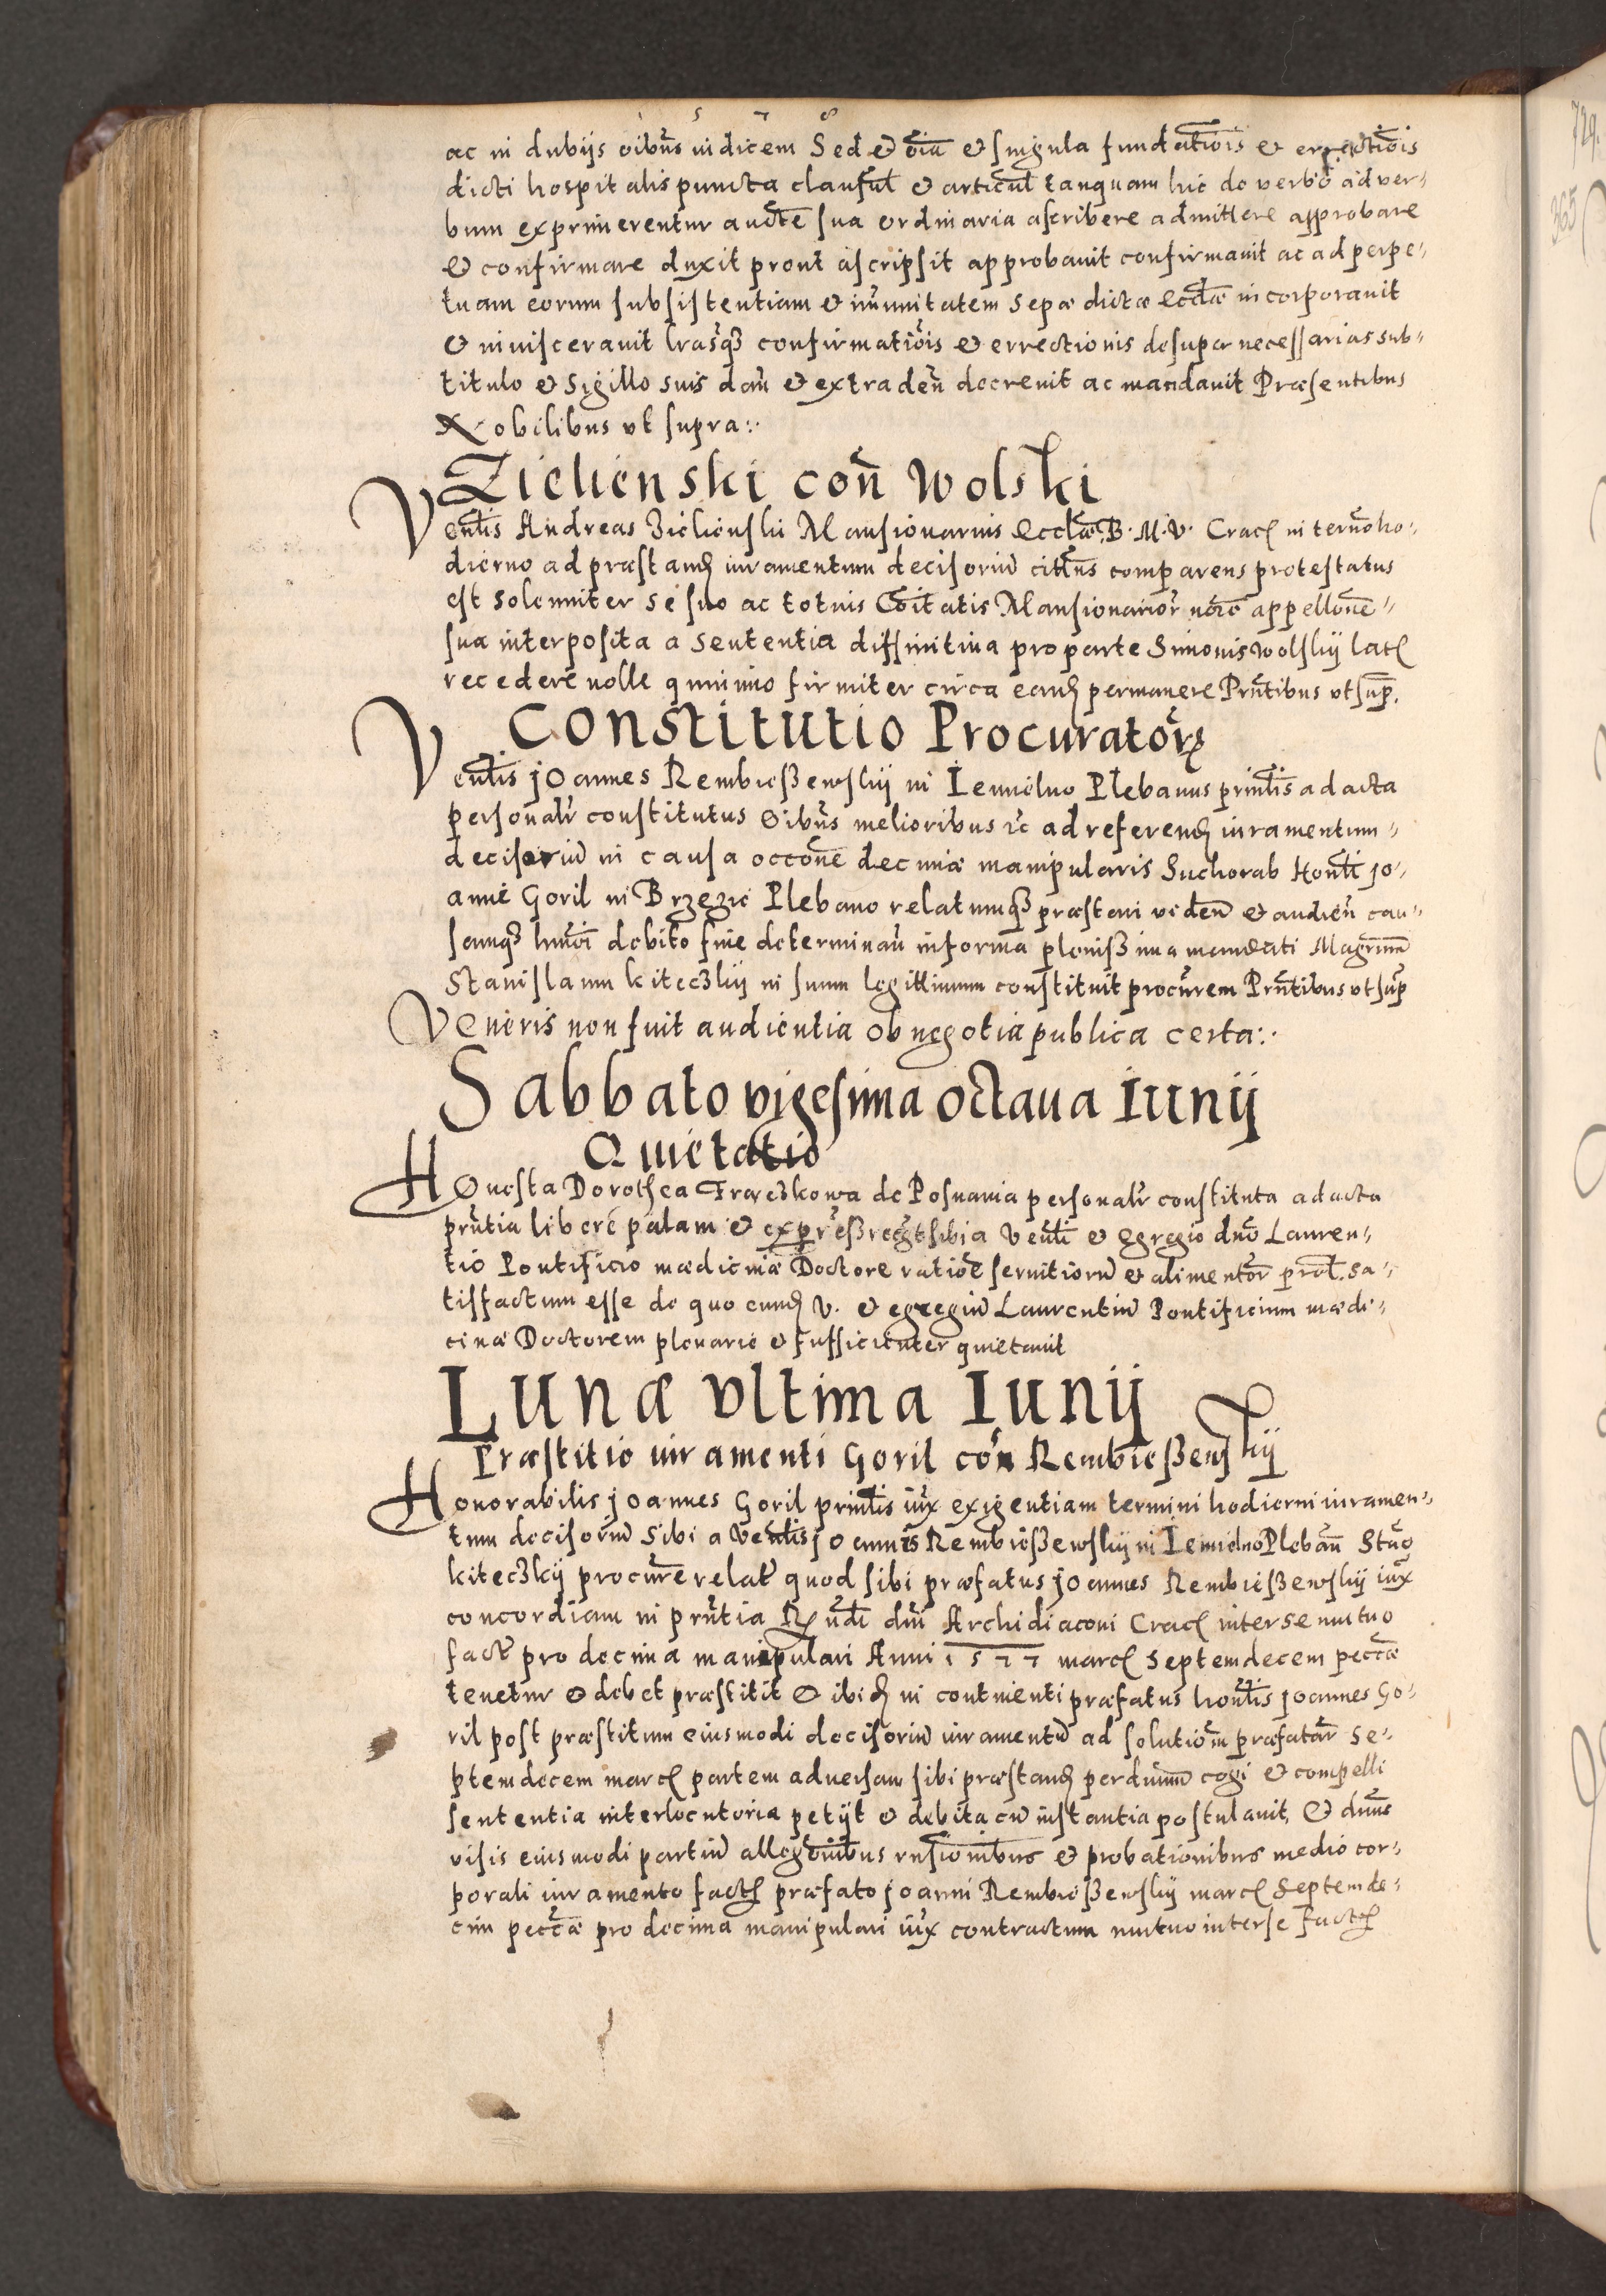 1 5 7 8
ac in dubijs oibus iudicem Sed et oia et singula fundationis et errectiois
dicti hospitalis puncta clausul et articul tanquam hic de verbo ad ver-
bum exprimerentur aucte sua ordinaria ascribere admittere approbare
et confirmare duxit prout ascripsit approbauit confirmauit ac ad perpe-
tuam eorum subsistentiam et immunitatem Sepæ dictæ Ecclæ incorporauit
et inuiscerauit lrasq3 confirmatiois et errectionis desuper necessarias sub-
titulo et Sigillo suis dan et extraden decreuit ac mandauit Præsentibus
Nobilibus vt supra:.
Zielienski con Wolski
Venlis Andreas Zielienski Mansionarius Ecclæ B. M. V. Crac in termo ho-
dierno ad præstand iuramentum decisoriu citatus comparens protestatus
est Solenniter Se suo ac totius Coitatis Mansionarior noie appellone-
sua interposita a Sententia diffinitiua pro parte Simonis Wolskij lat
recedere nolle quinimo firmiter circa eand permanere Pntibus vt sup.
Constitutio Procurator
Venlis Joannes Rembieszewskij in Iemielno Plebanus prinlis ad acta
personalr constitutus Oibus melioribus rc ad referend iuramentum-
decisoriu in causa occone decimæ manipularis Suchorab Honli Jo-
anne Goril in Brzezie Plebano relatumq3 præstari viden et audien cau-
samq3 hmoi debito fine determinan in forma plenissima mandati Magrum
Stanislaum Kiteczkij in suum legittimum constituit procurem Pntibus vt sup
Veneris non fuit audientia ob negotia publica certa:.
Sabbato vigesima octaua Iunij
Quietatio
Honesta Dorothea Fraczkowa de Posnania personalr constituta ad acta
pntia libere palam et express recgt sibi a Venli et Egregio dno Lauren-
tio Pontificio mædicinæ Doctore ratioe seruitioru et alimentor prol. sa-
tisfactum esse de quo eund V. et egregiu Laurentiu Pontificium mædi-
cinæ Doctorem plenarie et sufficienter quietauit
Lunæ vltima Iunij
Præstitio iuramenti Goril con Rembieszewskij
Honorabilis Joannes Goril prinlis iux exigentiam termini hodierni iuramen-
tum decisoriu Sibi a Venlis Joannis Rembieszewskij in Iemielno Pleban Stao
Kiteczkij procure relat quod sibi præfatus Joannes Rembieszewskij iux
concordiam in pntia R ndi dni Archidiaconi Crac inter se mutuo
fact pro decima manipulari Anni 1577 marc Septemdecem peccæ
tenetur et debet præstitit et ibid in continenti præfatus honlis Joannes Go-
ril post præstitum eiusmodi decisoriu iuramentu ad solutiom præfatar Se-
ptemdecem marc partem aduersam sibi præstand per dnum cogi et compelli
sententia interlocutoria petijt et debita cu instantia postulauit, Et dnus
visis eiusmodi partiu allegonibus rnsionibus et probationibus medio cor-
porali iuramento fact præfato Joanni Rembieszewskij marc Septemde-
cim peccæ pro decima manipulari iux contractum mutuo inter se fact
729.
365